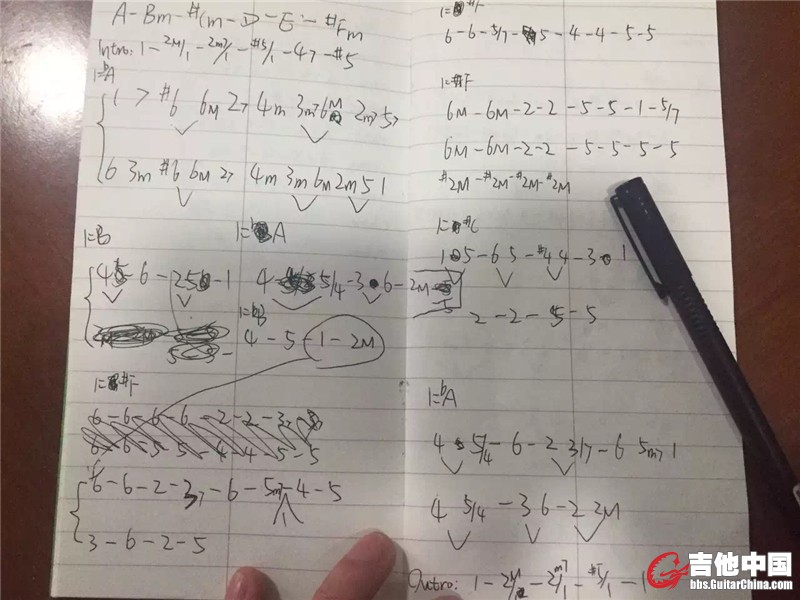 A - Bm - #Cm - D - E - #Fm
Intro: 1 - 2M/1 - 2m7/1 - #5/1 - 47 - #5
1=bA
1 7 #6 6M 27 4m 3m7 6M 2m7 57
6 3m #6 6M 27 4m 3m 6M 2m 5 1
1=B
4 5 - 6 - 2 5 - 1
1=bA
4 5/4 - 3 6 - 2M
5
1=B
4 - 5 - 1 - 2M
1=#F
6 - 6 - 6 - 6 - 2 - 2 - 3
6 - 6 - 5 - 5 - 4 - 4 - 5 - 5
6 - 6 - 2 - 37 - 6 - 5m7 - 4 - 5
1
3 - 6 - 2 - 5
1=#F
6 - 6 - 5/7 - 5 - 4 - 4 - 5 - 5
1=#F
6M - 6M - 2 - 2 - 5 - 5 - 1 - 5/7
6M - 6M - 2 - 2 - 5 - 5 - 5 - 5
#2M - #2M - #2M - #2M
1=#C
1 5 - 6 5 - #4 4 - 3 1
2 - 2 - 5 - 5
1=bA
4 5/4 - 6 - 2 317 - 6 5m7 1
4 5/4 - 3 6 - 2 2M
Outro: 1 - 2M/1 - 2m7/1 - #5/1 - 1
吉他中国
bbs.GuitarChina.com